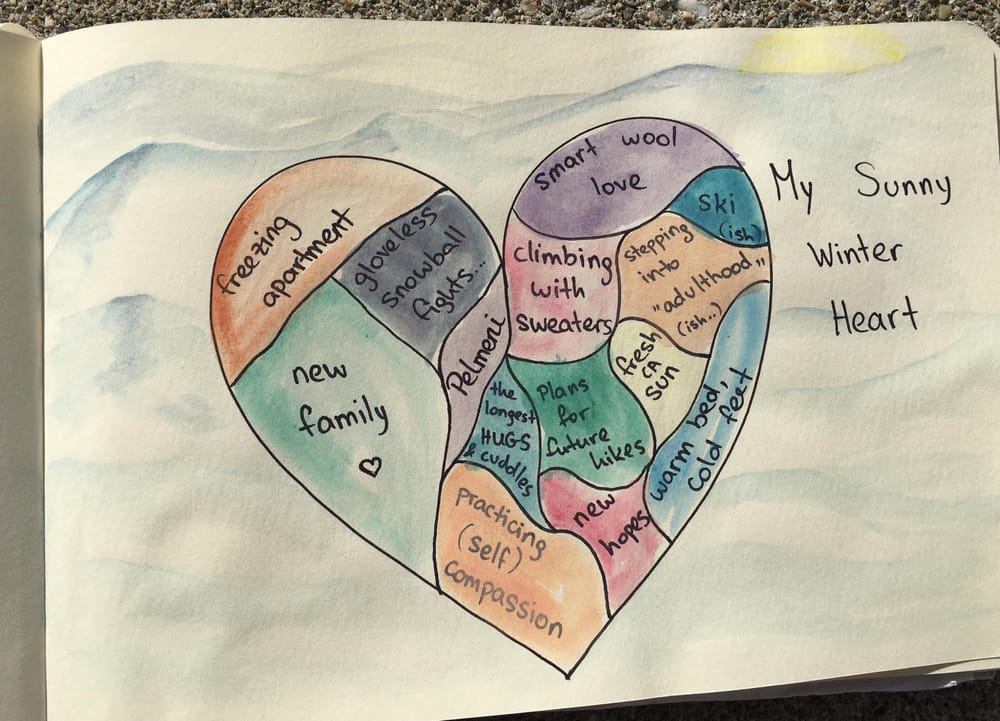 My Sunny
Winter
Heart
freezing
apartment
gloveless
snowball
fights...
new
family
Pelmeni
smart wool
love
ski
(ish)
climbing
with
sweaters
stepping
into
"adulthood"
(ish..)
fresh
CA
sun
warm bed,
cold feet
the
longest
HUGS
& cuddles
Plans
for
future
hikes
new
hopes
practicing
(self)
compassion